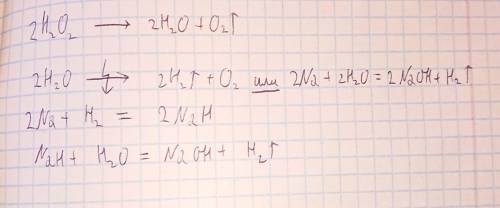 2H₂O₂ ⟶ 2H₂O + O₂↑
2H₂O ⟶ 2H₂↑ + O₂ или 2Na + 2H₂O = 2NaOH + H₂↑
2Na + H₂ = 2NaH
NaH + H₂O = NaOH + H₂↑